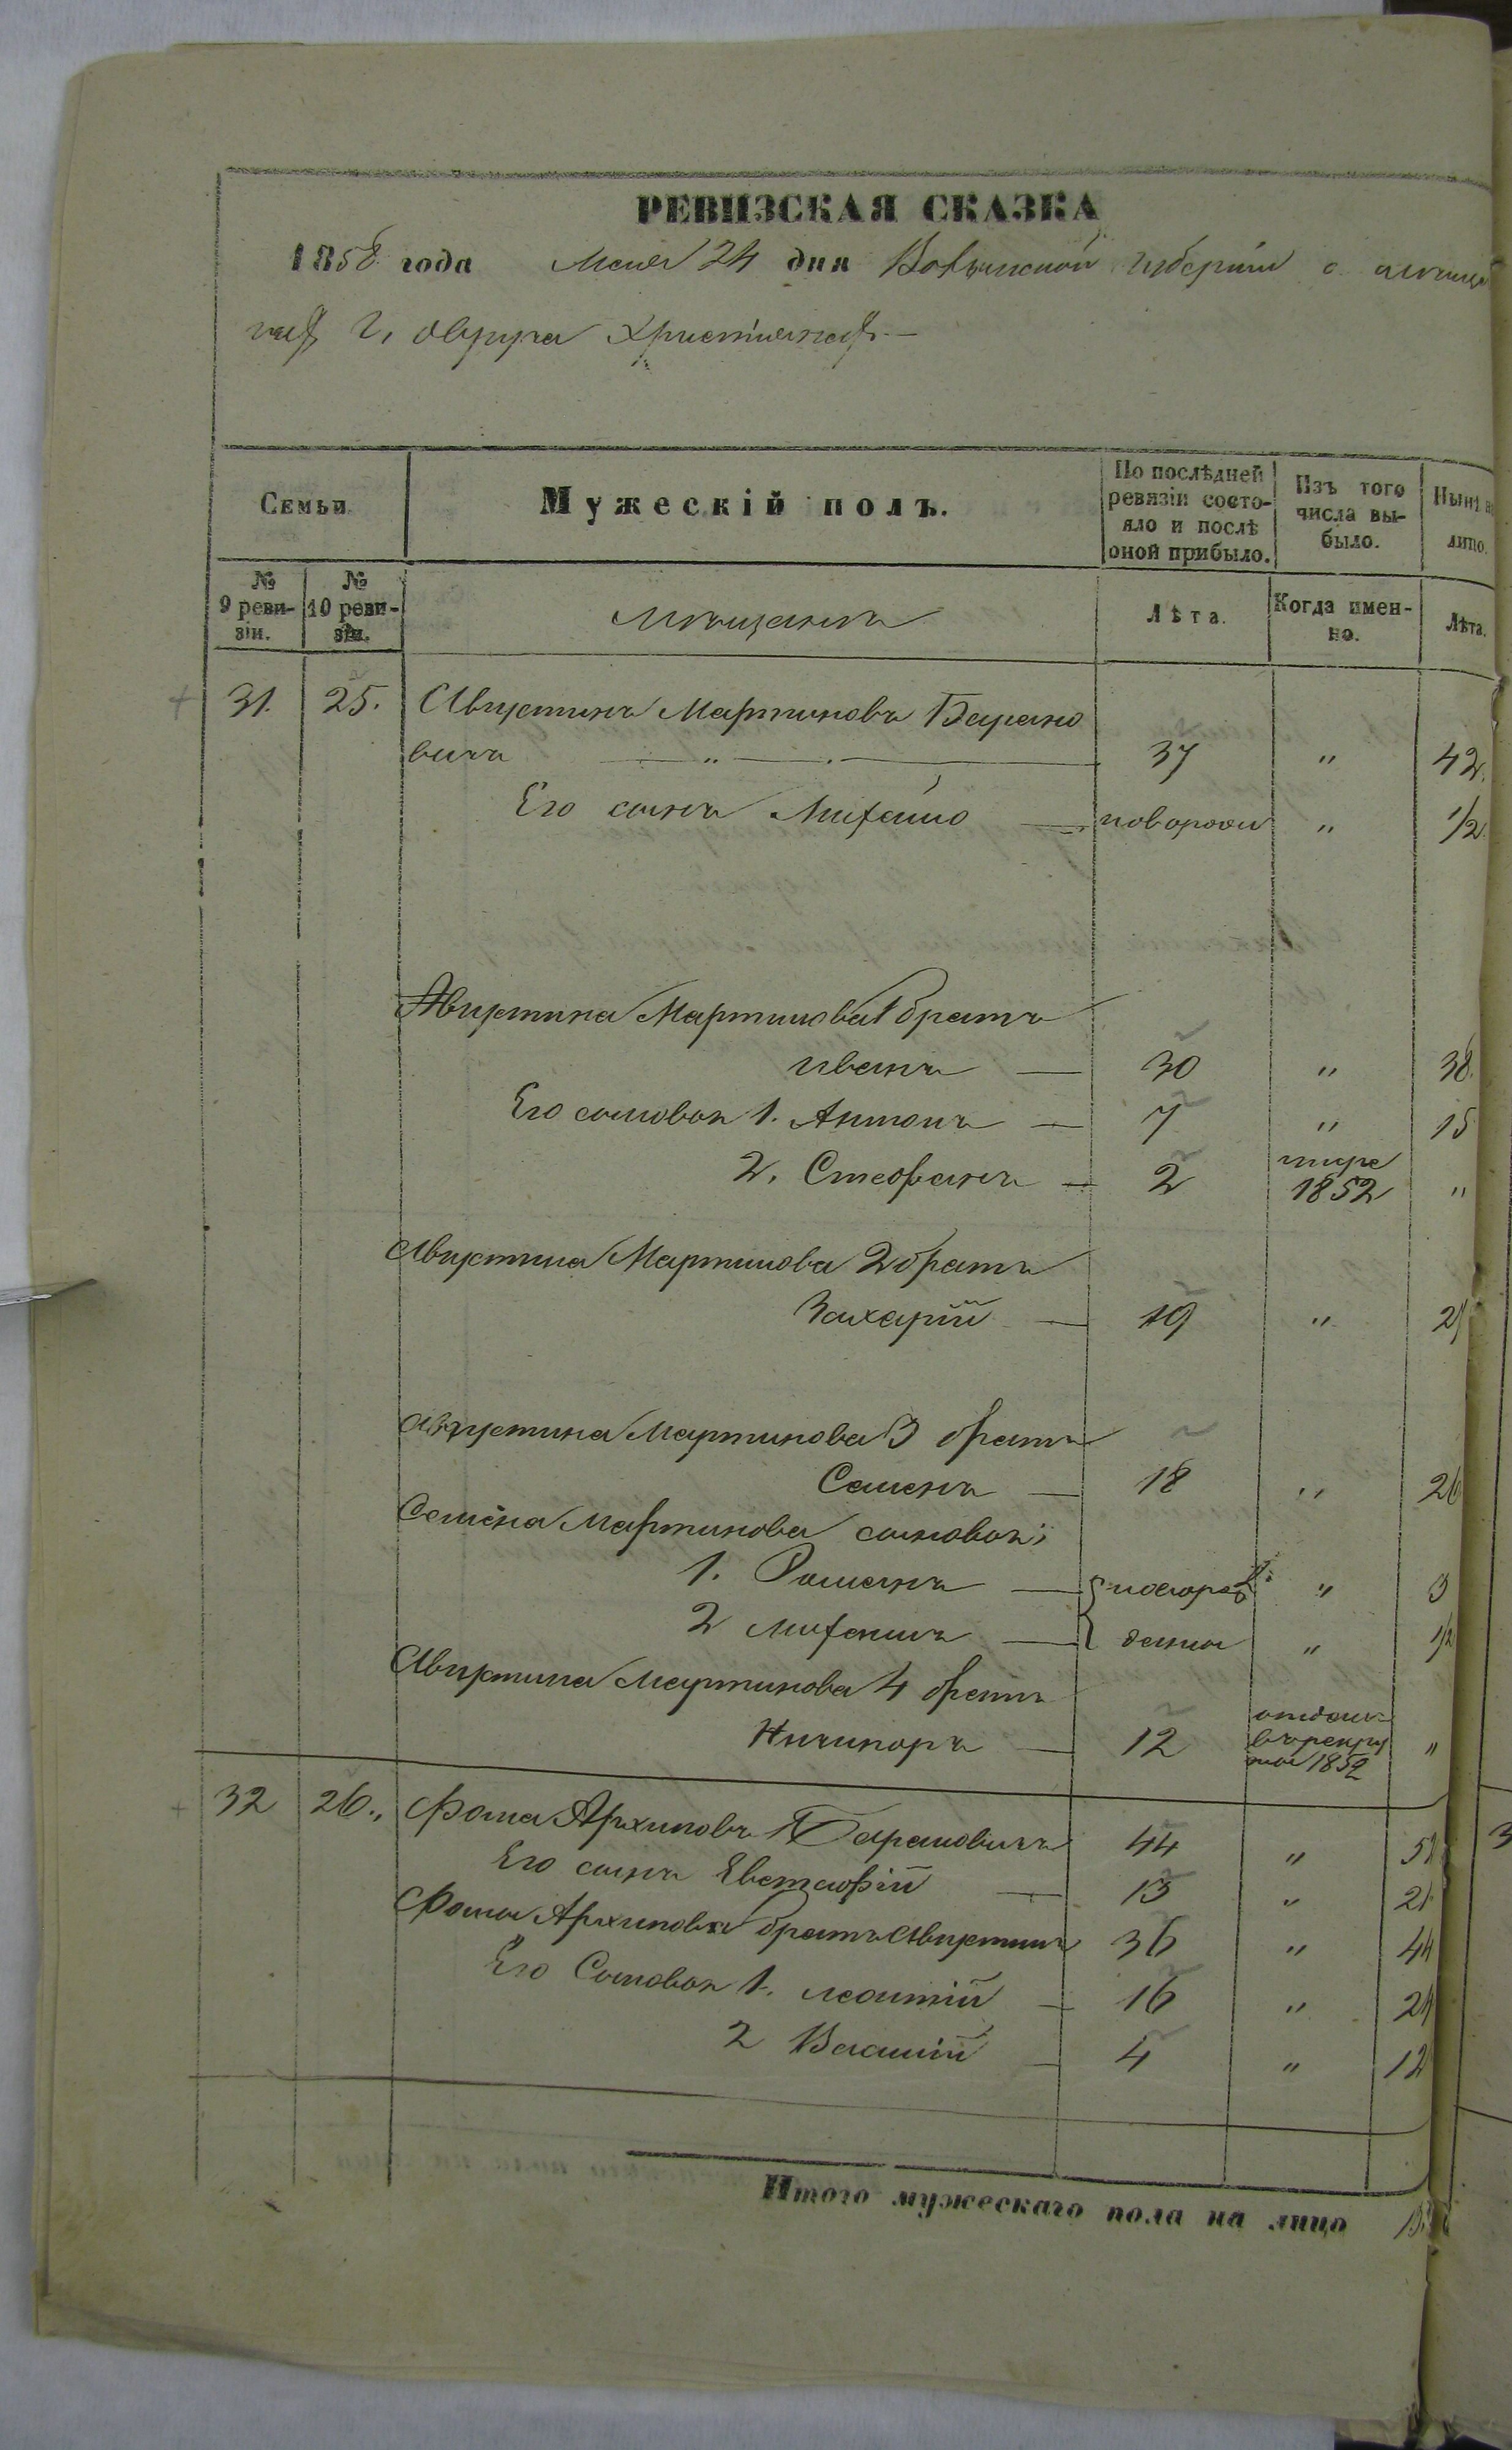 РЕВИЗСКАЯ СКАЗКА
1858 года Мая 24 дня Волынской губерніи о мѣща
нахъ г. Овруча Христіанахъ.—
Семьи.
Мужескій полъ.
По послѣдней ревизіи состо-яло и послѣ оной прибыло.
Изъ того числа вы-было.
Нынѣ на лицо.
№ 9 реви-зіи.
№ 10 реви-зіи.
Мѣщанинъ
Лѣта.
Когда имен-но.
Лѣта.
31. 25. Августинъ Мартиновъ Барано
вичъ 37 " 42.
Его сынъ Михайло новорож " 1/2
Августина Мартинова 1 братъ
Иванъ — 30 " 38.
Его сыновья 1. Антонъ — 7 " 15
2. Стефанъ — 2 умре 1852 "
Августина Мартинова 2 братъ
Захарій — 19 " 27
Августина Мартинова 3 братъ
Семенъ — 18 " 26
Семёна Мартинова сыновья;
1. Романъ — " 3
2 Михаилъ — " 1/2
Августина Мартинова 4 братъ
Ничипоръ — 12 отданъ въ рекру ты 1852 "
32 26., Фома Архиповъ Барановичъ 44 " 52
Его сынъ Евстафій — 13 " 21
Фомы Архипова братъ Августинъ 36 " 44
Его Сыновья 1. Леонтій — 16 " 24
2 Василій — 4 " 12
Итого мужескаго пола на лицо